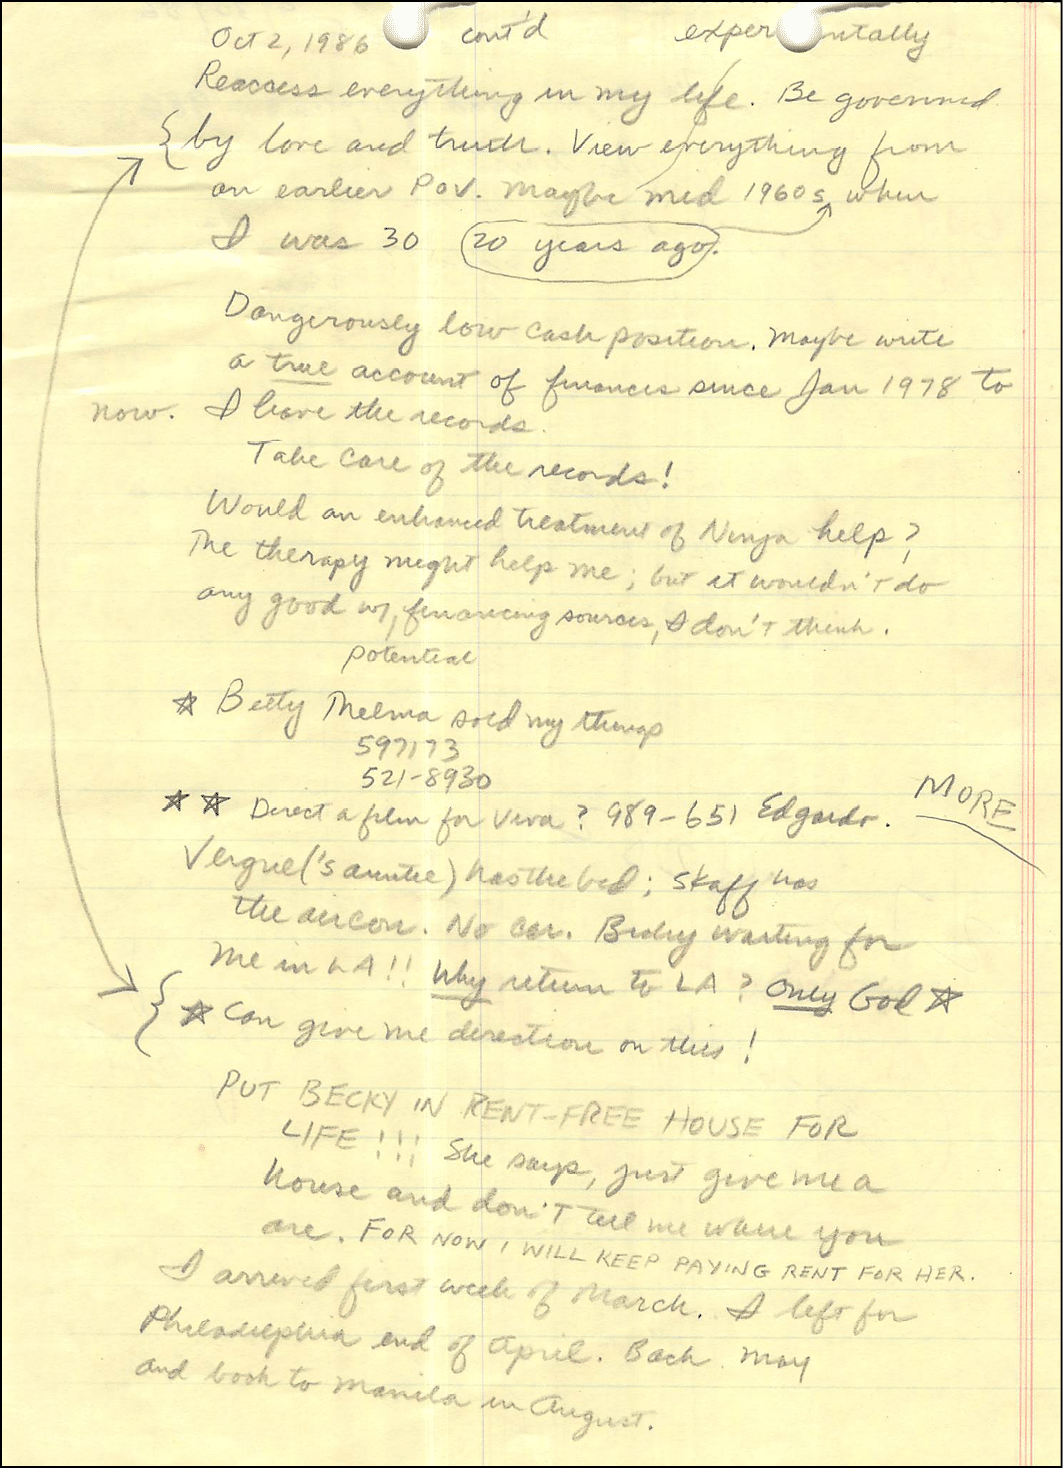 Oct 2, 1986 cont'd exper ntally
Reaccess everything in my life. Be governed
by love and truth. View everything from
an earlier POV. Maybe mid 1960s, when
I was 30 20 years ago.
Dangerously low cash position. Maybe write
a true account of finances since Jan 1978 to
now. I have the records.
Take care of the records!
Would an enhanced treatment of Ninja help?
The therapy might help me; but it wouldn't do
any good w/, financing sources, I don't think.
potential
☆ Betty Thelma sold my things
597173
521-8930
☆ ☆ Direct a film for Viva? 989-651 Edgardo. MORE
('s auntie) has the bed; Skaff has
the aircon. No car. waiting for
me in LA!! Why return to LA? Only God ☆
☆ Can give me direction on this!
PUT BECKY IN RENT-FREE HOUSE FOR
LIFE!!! She says, just give me a
house and don't tell me where you
are. FOR NOW I WILL KEEP PAYING RENT FOR HER.
I arrived first week of March. I left for
Philadelphia end of April. Back May
and back to Manila in August.